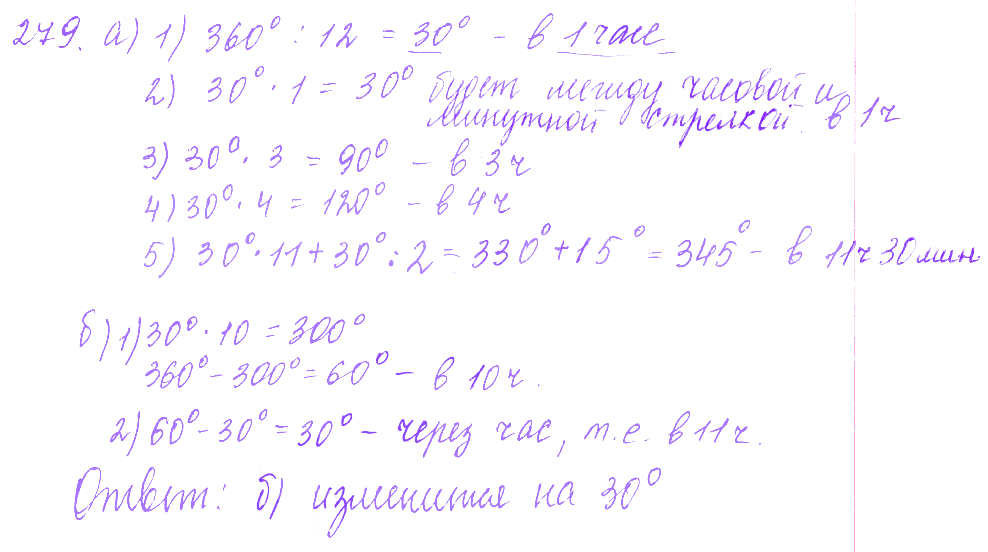 279. а) 1) 360° : 12 = 30° - в 1 часе
2) 30° · 1 = 30° будет между часовой и
минутной стрелкой в 1 ч
3) 30° · 3 = 90° - в 3 ч
4) 30° · 4 = 120° - в 4 ч
5) 30° · 11 + 30° : 2 = 330° + 15° = 345° - в 11 ч 30 мин
б) 1) 30° · 10 = 300°
360° - 300° = 60° - в 10 ч.
2) 60° - 30° = 30° - через час, т.е. в 11 ч.
Ответ: б) изменится на 30°